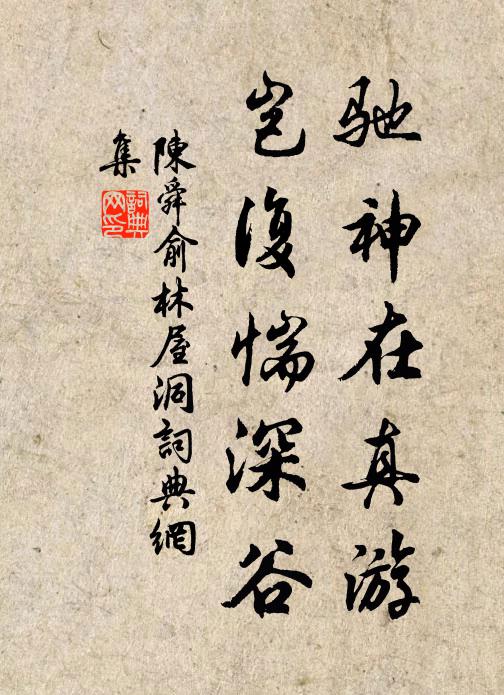 馳神在真游
豈復惴深谷
陳舜俞林屋洞詞典網
集
詞典
网印